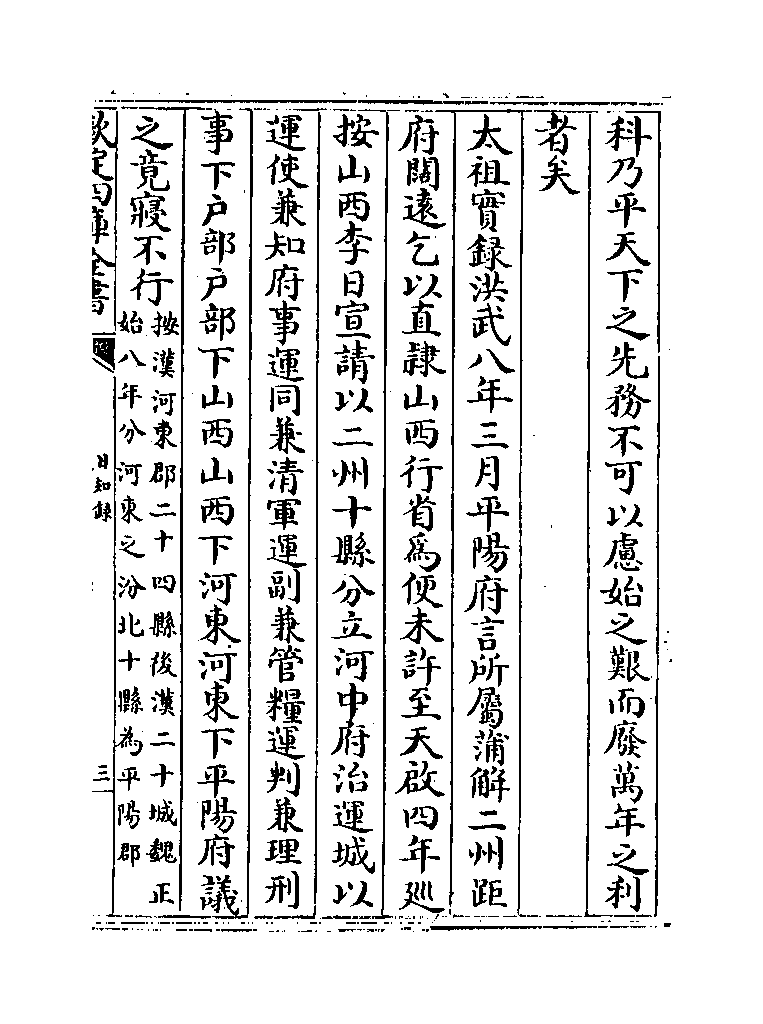 科乃平天下之先務不可以慮始之艱而廢萬年之利
者矣
太祖實録洪武八年三月平陽府言所屬蒲解二州距
府闊遠乞以直隷山西行省爲便未許至天啟四年廵
按山西李日宣請以二州十縣分立河中府治運城以
運使兼知府事運同兼清軍運副兼管糧運判兼理刑
事下户部户部下山西山西下河東河東下平陽府議
之竟寢不行
按漢河東郡二十四縣後漢二十城魏正
始八年分河東之汾北十縣為平陽郡
欽定四庫全書
日知録
三